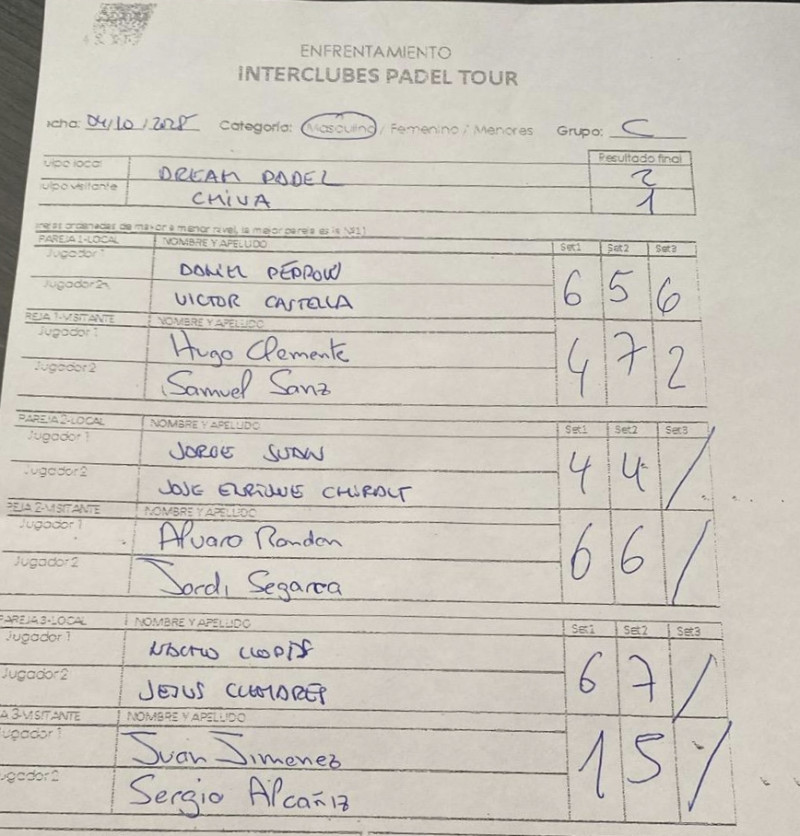 ENFRENTAMIENTO
INTERCLUBES PADEL TOUR
echa: 04/10/2025 Categoría: Masculino / Femenino / Menores Grupo: C
Resultado final
uipo local DREAM PADEL 2
uipo visitante CHIVA 1
PAREJA 1-LOCAL NOMBRE Y APELLIDO Set1 Set2 Set3
Jugador 1
Jugador 2 VICTOR CASTELLA 6 5 6
REJA 1-VISITANTE NOMBRE Y APELLIDO
Jugador 1 Hugo Clemente
Jugador 2 Samuel Sanz 4 7 2
PAREJA 2-LOCAL NOMBRE Y APELLIDO Set1 Set2 Set3
Jugador 1 JORGE JUAN
Jugador 2 JOSE ENRIQUE CHIRALT 4 4 /
REJA 2-VISITANTE NOMBRE Y APELLIDO
Jugador 1 Alvaro Rondan
Jugador 2 Jordi Segarra 6 6 /
PAREJA 3-LOCAL NOMBRE Y APELLIDO Set1 Set2 Set3
Jugador 1 NACHO LLOPIS
Jugador 2 JESUS 6 7 /
A 3-VISITANTE NOMBRE Y APELLIDO
ugador 1 Juan Jimenez
ugador 2 Sergio Alcañiz 1 5 /